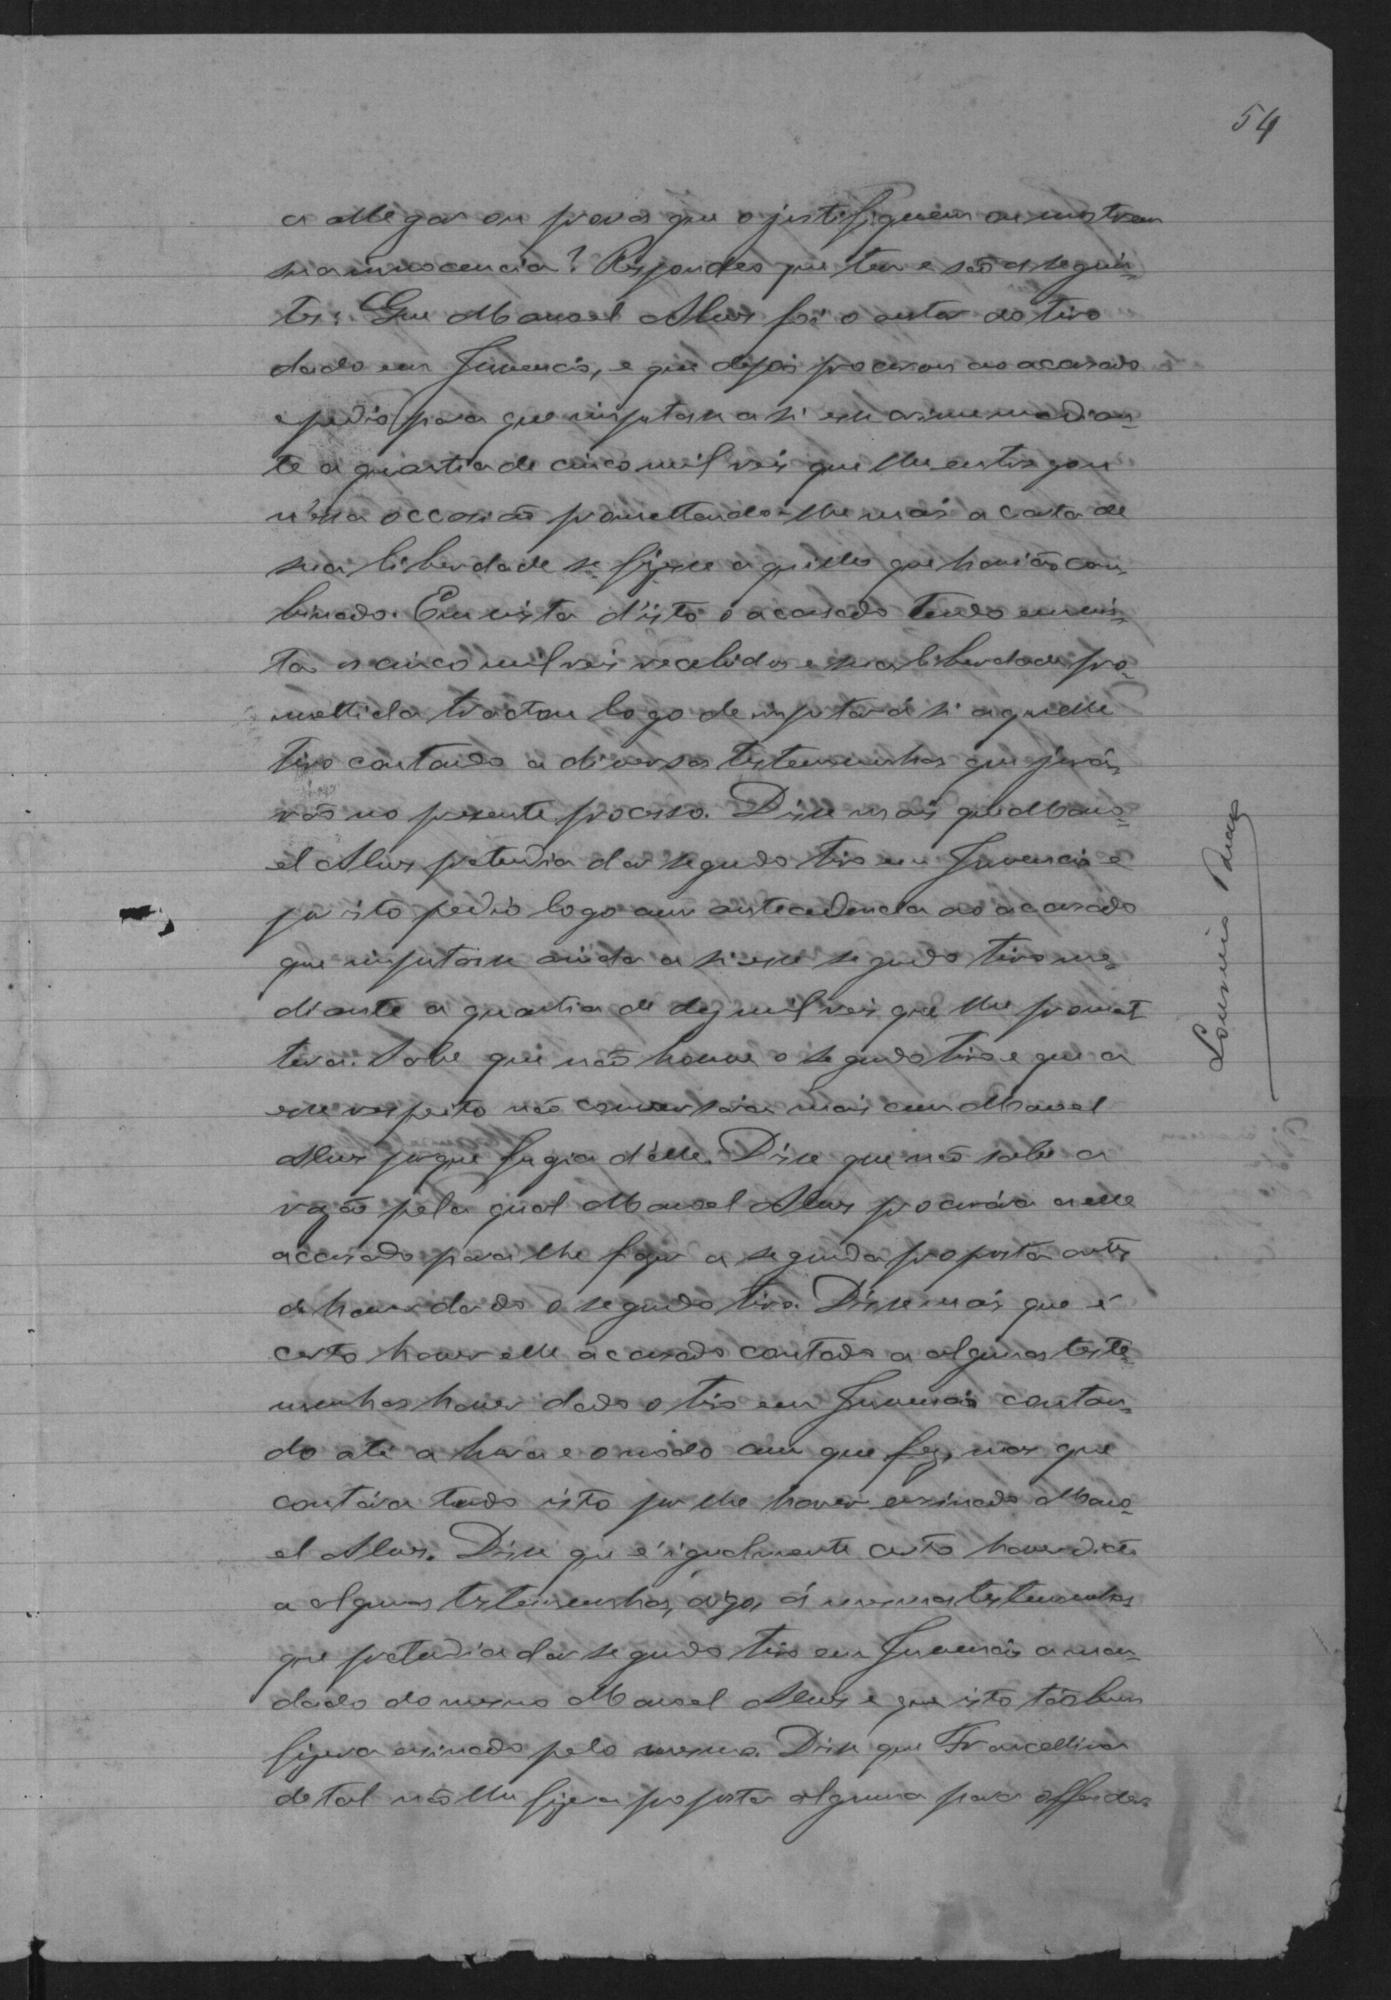 54
a allegar ou provas que o justifiquem ou mostrem
sua innocencia? Respondeo que tem e são as seguin-
tes: Que Manoel Alves foi o autor do tiro
dado em Juvencio, e que depois procurou ao acusado
e pedio para que imputasse a si esse crime median-
te a quantia de cinco mil reis que lhe entregou
n'essa occasião promettendo-lhe mais a carta de
sua liberdade se fizesse aquillo que havião com-
binado. Em vista d'isto o acusado tendo em vis-
ta os cinco mil reis recebidos e sua liberdade pro-
mettida tractou logo de imputar á si aquelle
tiro contando a diversas testemunhas que jurá-
rão no presente processo. Disse mais que Mano-
el Alves pretendia dar segundo tiro em Juvencio e
por isto pedio logo com antecedencia ao acusado
que imputasse ainda a si esse segundo tiro me-
diante a quantia de dez mil reis que lhe promet-
tera. Sabe que não houve o segundo tiro e que a
esse respeito não conversára mais com Manoel
Alves porque fugia d'elle. Disse que não sabe a
razão pela qual Manoel Alves procurára a elle
accusado para lhe fazer a segunda proposta antes
de haver dado o segundo tiro. Disse mais que é
certo haver elle acusado contado a algumas teste-
munhas haver dado o tiro em Juvencio contan-
do até a hora e o modo com que fez, mas que
contára tudo isto por lhe haver ensinado Mano-
el Alves. Disse que é igualmente certo haver dito
a algumas testemunhas, digo, ás mesmas testemunhas
que pretendia dar segundo tiro em Juvencio a man-
dado do mesmo Manoel Alves e que isto tãobem
fizera ensinado pelo mesmo. Disse que Francellina
de tal não lhe fizera proposta alguma para offender